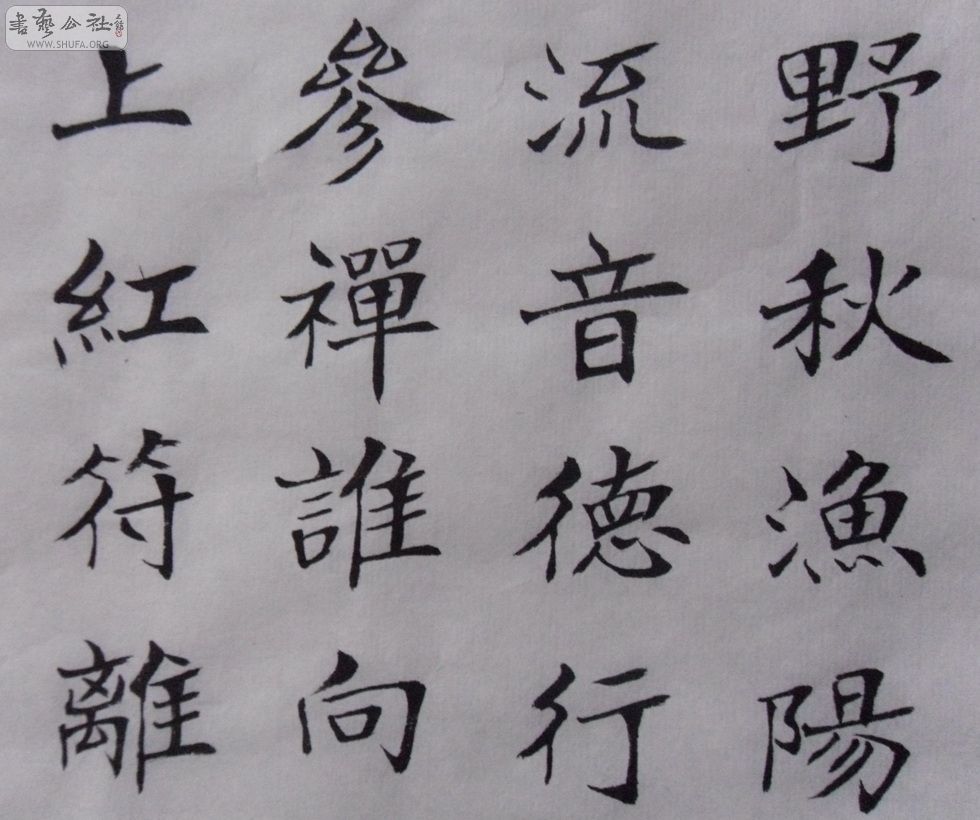 野秋漁陽
流音德行
參禪誰向
上紅符離
書藝公社
WWW.SHUFA.ORG